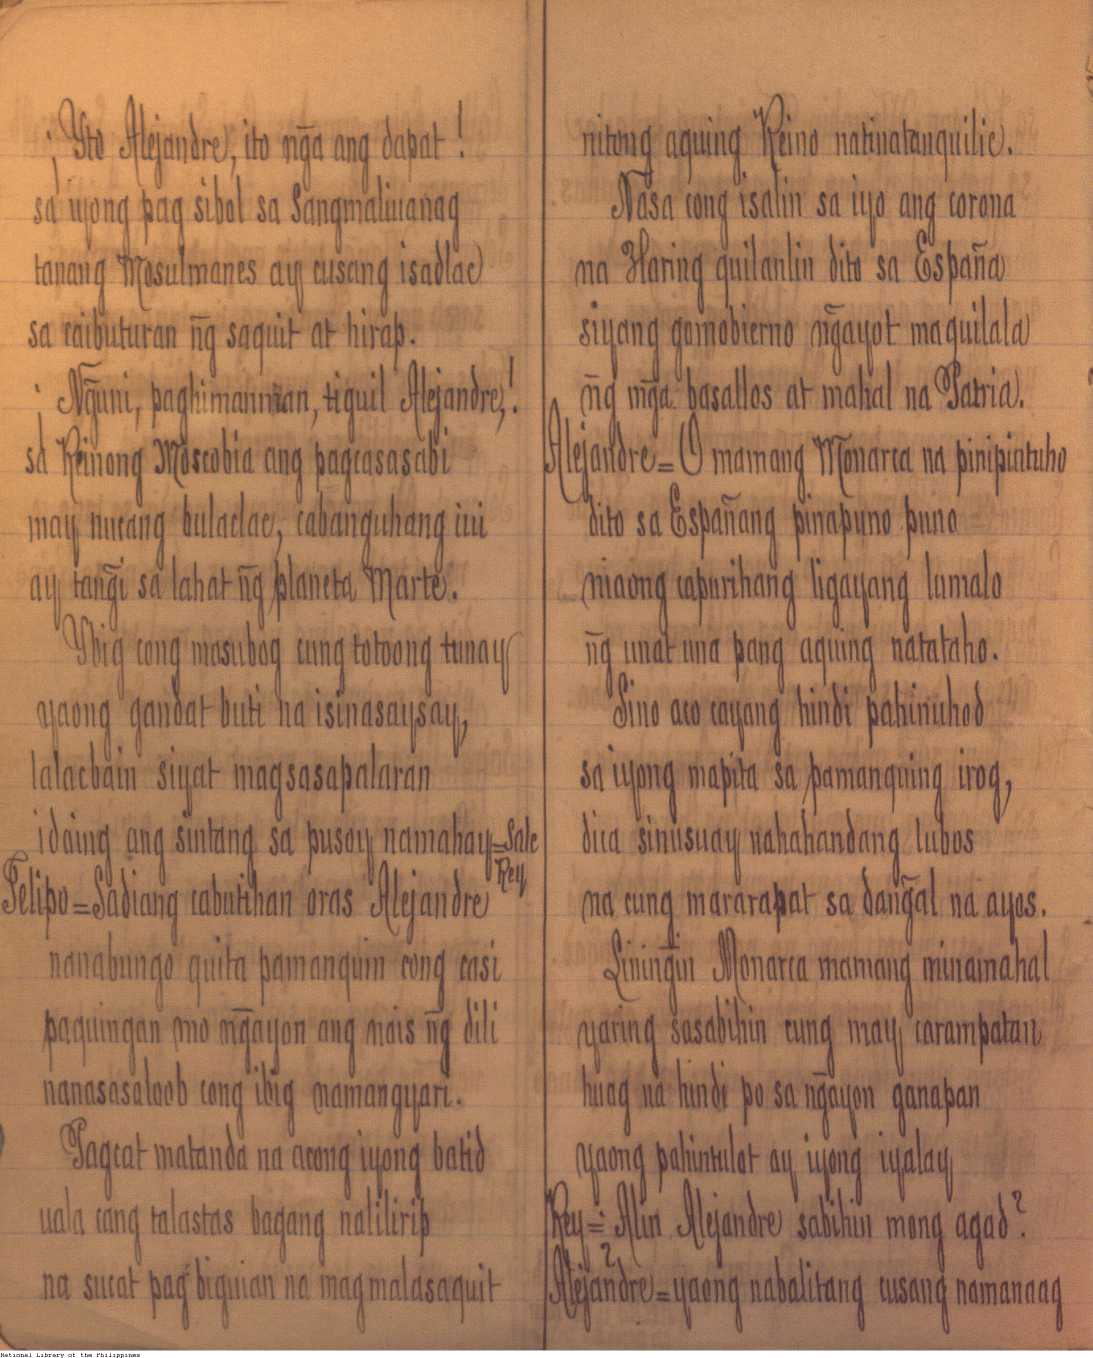 ¡Yto Alejandre, ito ng̃a ang dapat!
sa iyong pag sibol sa Sangmaliuanag
tanang Mosulmanes ay cusang isadlac
sa caibuturan ñg saquit at hirap.
¡Ng̃uni, paghimannman, tiguil Alejandre,!
sa Reinong Moscobia ang pagcasasabi
may nucang bulaclac, cabanguhang iui
ay tang̃i sa lahat ñg planeta Marte.
Ybig cong masubog cung totoong tunay
yaong gandat buti na isinasaysay,
lalacbain siyat magsasapalaran
idaing ang sintang sa pusoy namahay=Sale
Rey
Felipo=Sadiang cabutihan oras Alejandre
nanabungo quita pamanquin cong casi
paquingan mo ng̃ayon ang nais ñg dili
nanasasaloob cong ibig mamangyari.
Pagcat matanda na acong iyong batid
uala cang talastas bagang nalilirip
na sucat pag biguian na magmalasaquit
nitong aquing Reino natinatanquilic.
Nasa cong isalin sa iyo ang corona
na Haring quilanlin dito sa España
siyang gomobierno ng̃ayot maquilala
ñg mg̃a basallos at mahal na Patria.
Alejandre=O mamang Monarca na pinipintuho
dito sa Españang pinapuno puno
niaong capurihang ligayang lumalo
ñg unat una pang aquing natataho.
Sino aco cayang hindi pahinuhod
sa iyong mapita sa pamanquing irog,
dica sinusuay nahahandang lubos
na cung mararapat sa dang̃al na ayos.
Lining̃in Monarca mamang minamahal
yaring sasabihin cung may carampatan
huag na hindi po sa ng̃ayon ganapan
yaong pahintulot ay iyong iyalay
Rey=¿Alin Alejandre sabihin mong agad?
Alejandre=yaong nabalitang cusang namanaag
National Library of the Philippines